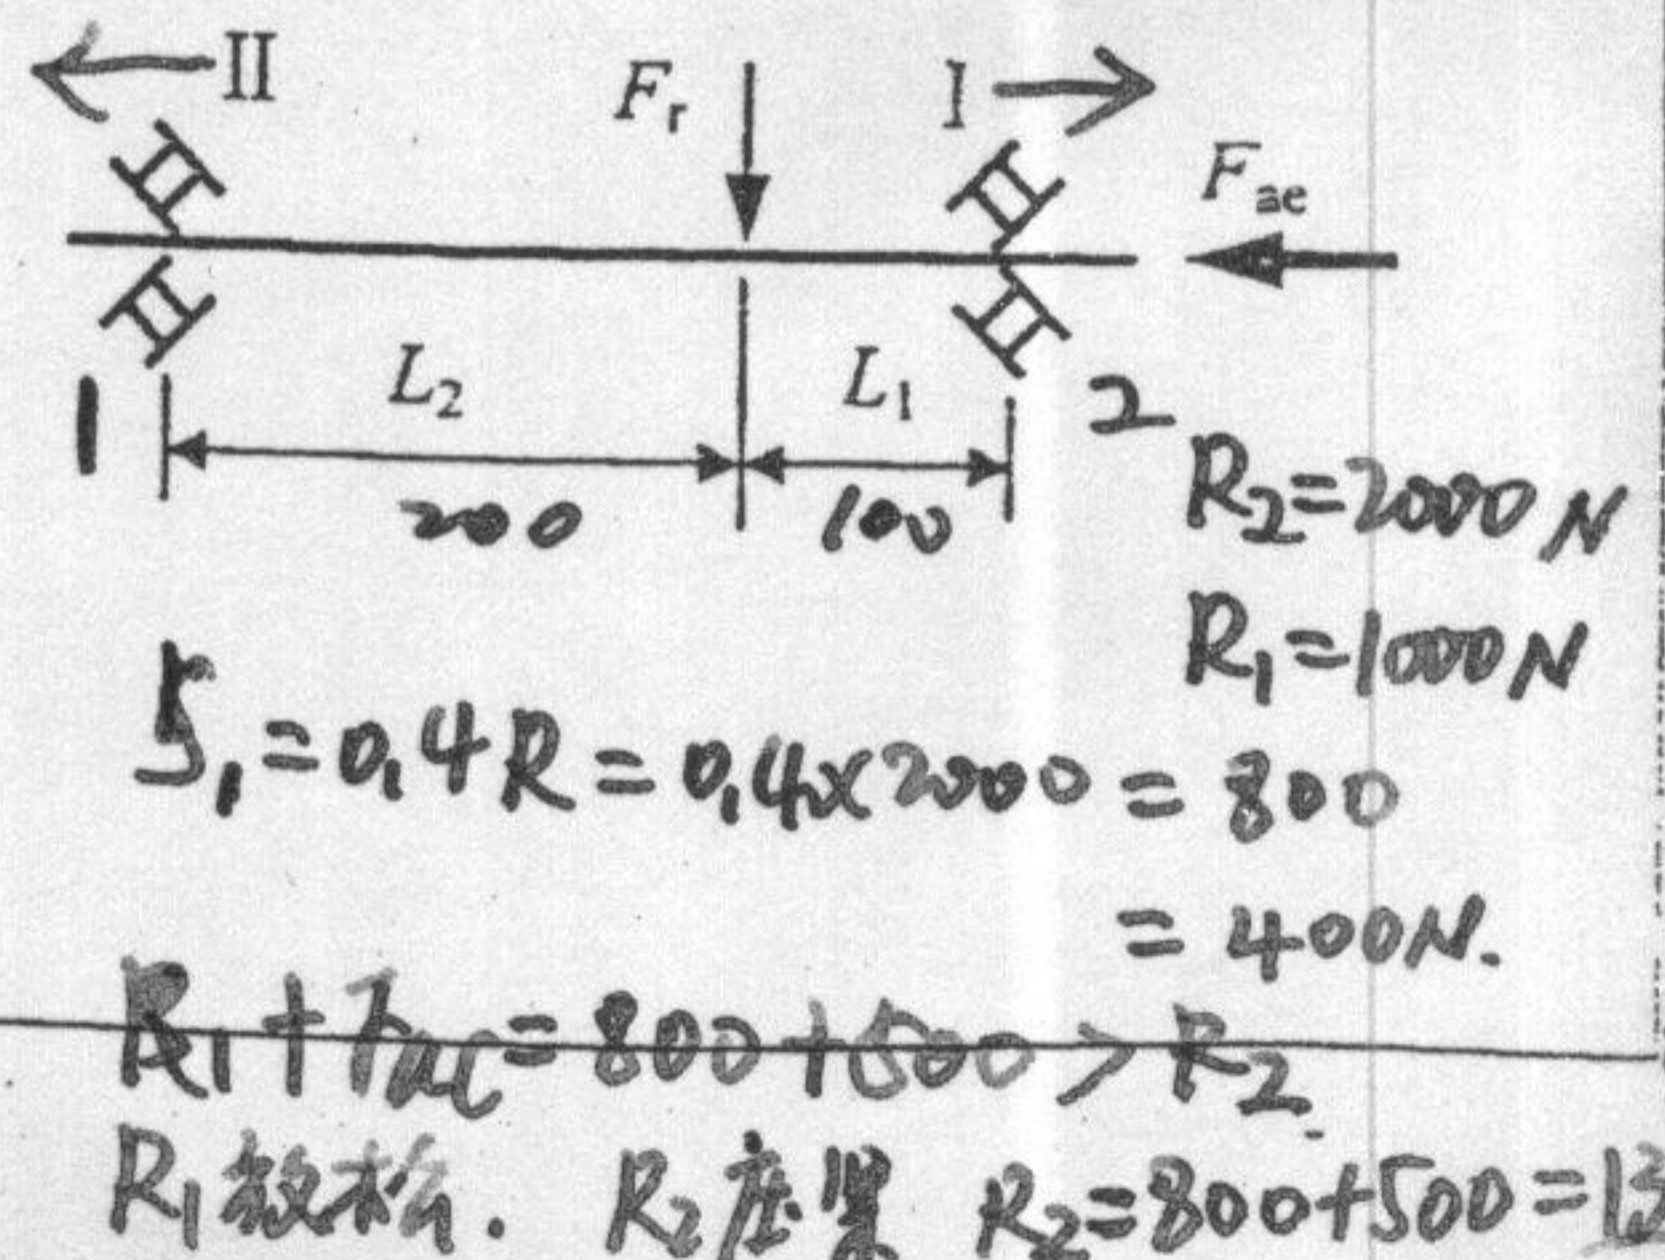 ← II F_r I →
F_ae
L_2 L_1
1 2
200 100
R_2=2000N
R_1=1000N
S_1=0.4R=0.4×2000=800
=400N.
R_1+F_ae=800+500>R_2
R_1放松. R_2压紧 R_2=800+500=13